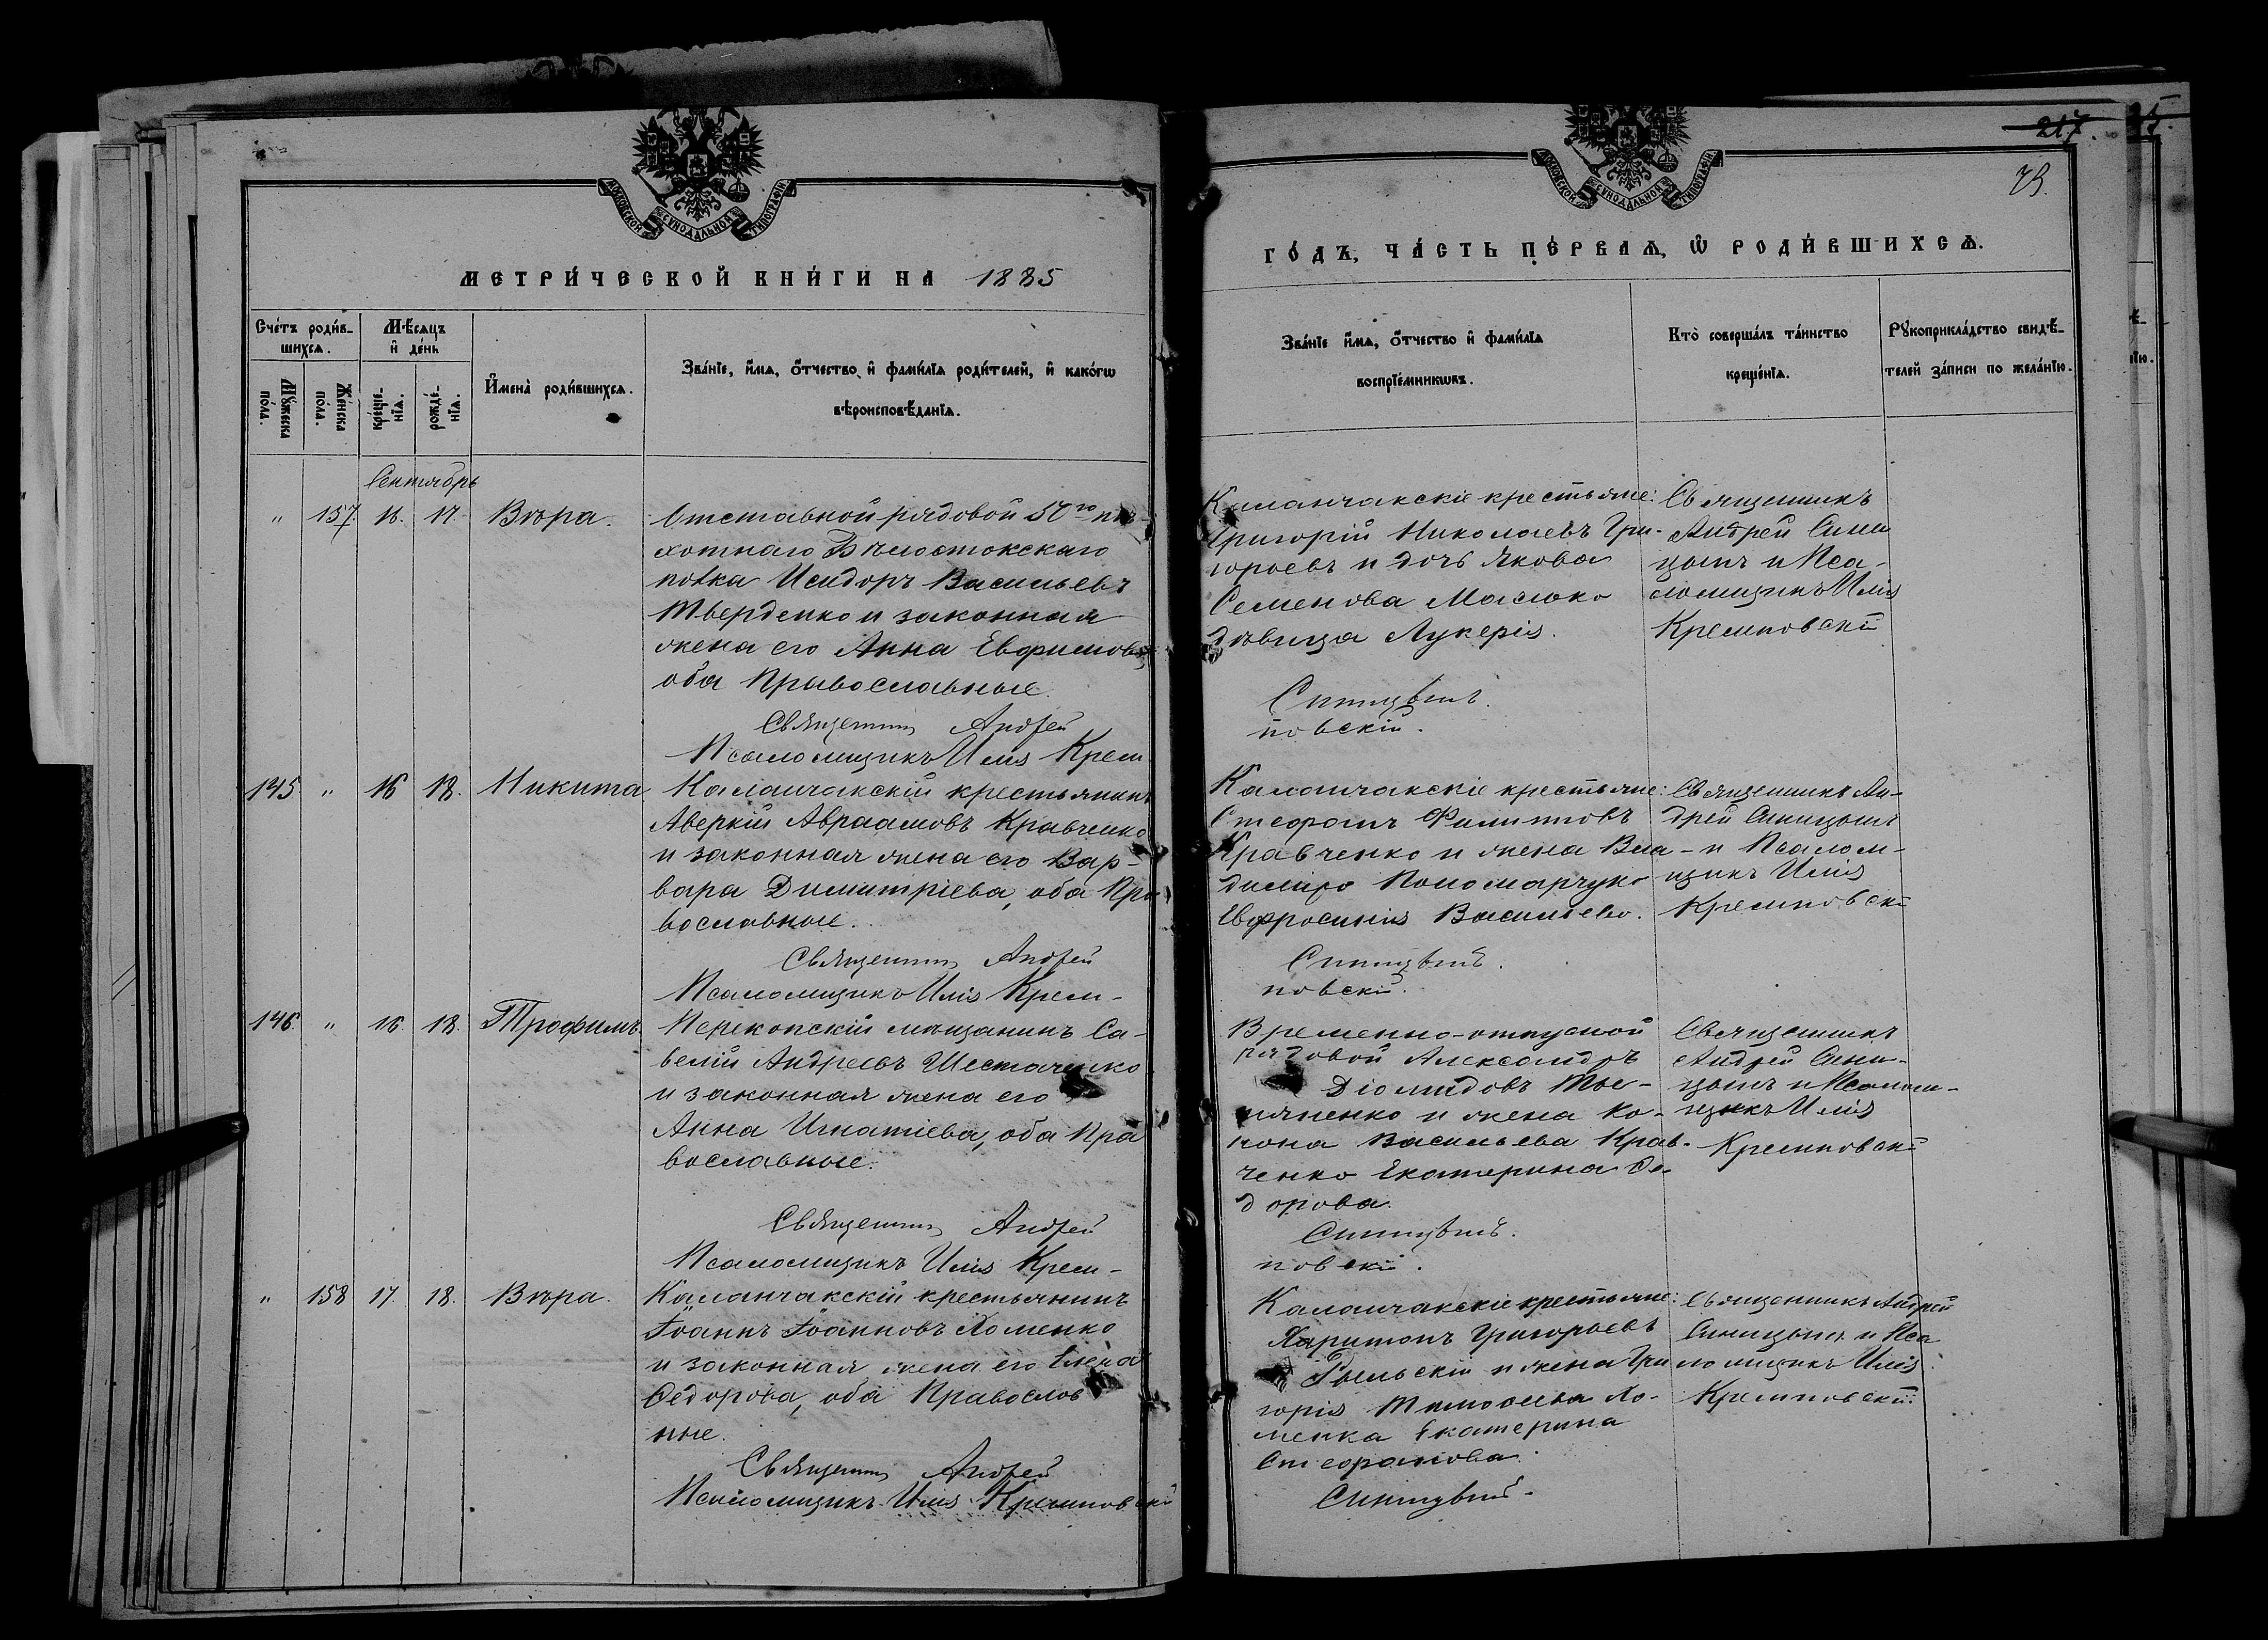 МОСКОВСКОЙ СУНОДАЛЬНОЙ ТИПОГРАФІИ
МЕТРИ́ЧЕСКОЙ КНИ́ГИ НА 1885
Сче́тъ роди́в-
шихсѧ.
Мѣ́сѧцъ
и҆ де́нь
Мꙋ́жеска
по́ла.
Же́нска
по́ла.
креще-
нїѧ.
рожде́-
нїѧ.
И҆мена̀ роди́вшихсѧ.
Зва́нїе, и҆́мѧ, о҆́тчество, и҆ фами́лїѧ роди́телей, и҆ како́гѡ
вѣроисповѣ́данїѧ.
Сентябрь
" 157. 16. 17. Вѣра.
Отставной рядовой 50го пѣ-
хотнаго Бѣлостокскаго
полка Исидоръ Васильевъ
Тверденко и законная
жена его Анна Евфимова
оба Православные.
Священникъ Андрей
Псаломщикъ Илія Крем-
145 " 16 18. Никита
Каланчакскій крестьянинъ
Аверкій Авраамовъ Кравченко
и законная жена его Вар-
вара Димитріева, оба Пра
вославные.
Священникъ Андрей
Псаломщикъ Илія Крем-
146. " 16. 18. Трофимъ
Перекопскій мѣщанинъ Са-
велій Андреевъ Шестаченко
и законная жена его
Анна Игнатіева, оба Пра
вославные.
Священникъ Андрей
Псаломщикъ Илія Крем-
" 158 17. 18. Вѣра.
Каланчакскій крестьянинъ
Іоаннъ Іоанновъ Хоменко
и законная жена его Елена
Ѳедорова, оба Православ
ные.
Священникъ Андрей
Псаломщикъ Илія Кремповскій
МОСКОВСКОЙ СУНОДАЛЬНОЙ ТИПОГРАФІИ
217.
79.
ГО́ДЪ, ЧА́СТЬ ПЕ́РВАѦ, Ѡ҆ РОДИ́ВШИХСѦ.
Зва́нїе и҆́мѧ, о҆́тчество и҆ фами́лїѧ
воспрїе́мникѡвъ.
Кто̀ соверша́лъ та́инство
креще́нїѧ.
Рꙋкоприкла́дство свидѣ́-
телей за́писи по жела́нїю.
Каланчакскіе крестьяне:
Григорій Николаевъ Гри-
горьевъ и дочь Якова
Семенова Масюко
дѣвица Лукерія.
Синицынъ.
повскій.
Священникъ
Андрей Сини
цынъ и Пса-
ломщикъ Илія
Кремповскій
Каланчакскіе крестьяне:
Стефанъ Филипповъ
Кравченко и жена Вла-
диміра Пономарчука
Евфросинія Васильева.
Синицынъ.
повскій.
Священникъ Ан-
дрей Синицынъ
и Псалом-
щикъ Илія
Кремповскій
Временно-отпускной
рядовой Александръ
Діомидовъ
и жена Ко-
нона Васильева Крав-
ченко Екатерина Ѳе-
дорова.
Синицынъ.
повскій.
Священникъ
Андрей Сини-
цынъ и Псалом-
щикъ Илія
Кремповскій
Каланчакскіе крестьяне:
Харитонъ Григорьевъ
Рыльскій и жена Гри
горія Тимофеева Хо-
менка Екатерина
Стефанова.
Синицынъ.
Священникъ Андрей
Синицынъ и Пса
ломщикъ Илія
Кремповскій.